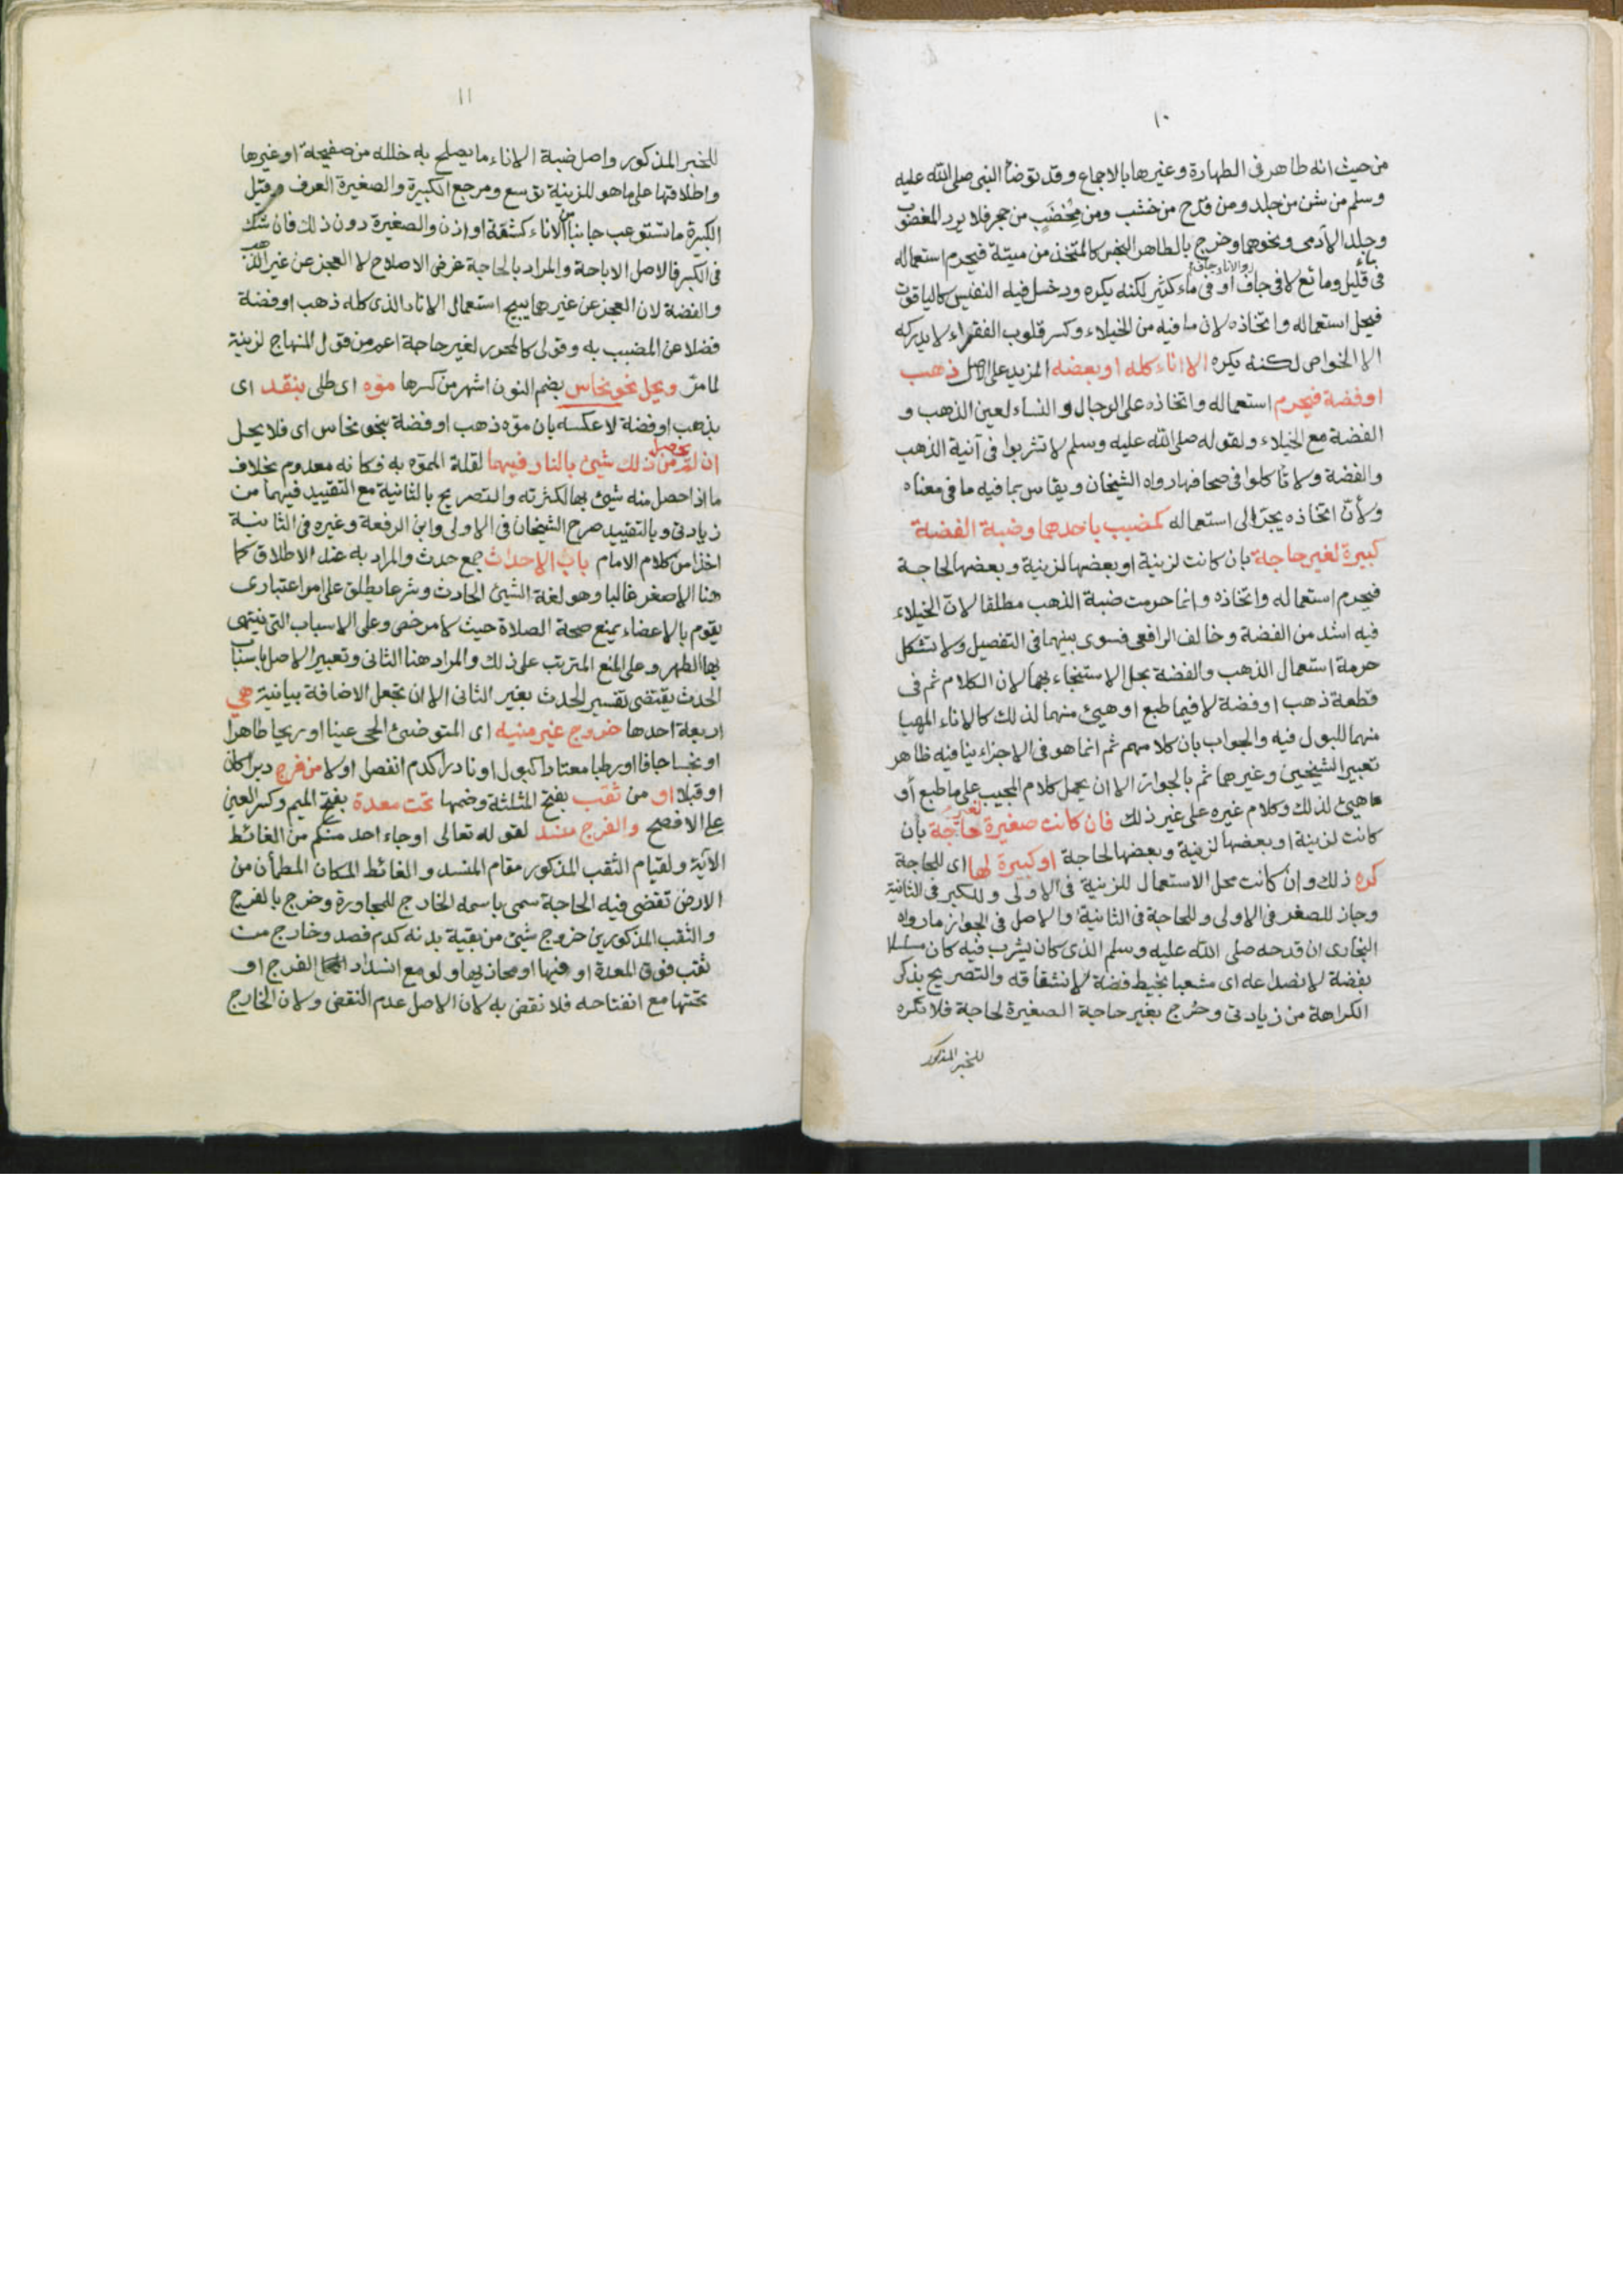 ١٠
من حيث انه طاهر في الطهارة وغيرها بالاجماع وقد توضأ النبي صلى الله عليه
وسلم من شن من جلد ومن قدح من خشب ومن مخضب من حجر فلا يرد المغصوب
وجلد الآدمي ونحوهما وخرج بالطاهر النجس كالمتخذ من ميتة فيحرم استعماله
في قليل ومائع لا في جاف والاناء جاف او في ماء كثير لكنه يكره ودخل فيه النفيس كالياقوت
فيحل استعماله واتخاذه لان ما فيه من الخيلاء وكسر قلوب الفقراء لا يدركه
الا الخواص لكنه يكره الا اناء كله او بعضه المزيد على الاصل ذهب
او فضة فيحرم استعماله واتخاذه على الرجال والنساء لعين الذهب و
الفضة مع الخيلاء ولقوله صلى الله عليه وسلم لا تشربوا في آنية الذهب
والفضة ولا تأكلوا في صحافها رواه الشيخان ويقاس بما فيه ما في معناه
ولأن اتخاذه يجر الى استعماله كمضبب باحدهما وضبة الفضة
كبيرة لغير حاجة بان كانت لزينة او بعضها لزينة وبعضها لحاجة
فيحرم استعماله واتخاذه وانما حرمت ضبة الذهب مطلقا لان الخيلاء
فيه اشد من الفضة وخالف الرافعي فسوى بينهما في التفصيل ولا تشكل
حرمة استعمال الذهب والفضة بحل الاستنجاء بهما لان الكلام ثم في
قطعة ذهب او فضة لا فيما طبع او هيئ منهما لذلك كالاناء المهيا
منهما للبول فيه والجواب بان كلامهم ثم انما هو في الاجزاء ينافيه ظاهر
تعبير الشيخين وغيرهما ثم بالجواز الا ان يحمل كلام المجيب على ما طبع أو
هيئ لذلك وكلام غيره على غير ذلك فان كانت صغيرة لغير حاجة بأن
كانت لزينة او بعضها لزينة وبعضها لحاجة او كبيرة لها اى للحاجة
كره ذلك وان كانت محل الاستعمال للزينة في الاولى وللكبر في الثانية
وجاز للصغر في الاولى وللحاجة في الثانية والاصل في الجواز ما رواه
البخارى ان قدحه صلى الله عليه وسلم الذى كان يشرب فيه كان مسلسلا
بفضة لانصداعه اى مشعبا بخيط فضة لانشقاقه والتصريح بذكر
الكراهة من زيادتى وخرج بغير حاجة الصغيرة لحاجة فلا تكره
للخبر المذكور
١١
للخبر المذكور واصل ضبة الاناء ما يصلح به خلله من صفيحة او غيرها
واطلاقها على ما هو للزينة توسع ومرجع الكبيرة والصغيرة العرف وقيل
الكبيرة ما تستوعب جانبا من الاناء كشفة او اذن والصغيرة دون ذلك فان شك
في الكبر فالاصل الاباحة والمراد بالحاجة غرض الاصلاح لا العجز عن غير الذهب
والفضة لان العجز عن غيرهما يبيح استعمال الاناء الذى كله ذهب او فضة
فضلا عن المضبب به وقولى كالمحرر لغير حاجة اعم من قول المنهاج لزينة
لما مر ويحل نحو نحاس بضم النون اشهر من كسرها موّه اى طلى بنقد اى
بذهب او فضة لا عكسه بان موّه ذهب او فضة بنحو نحاس اى فلا يحل
ان لم يحصل من ذلك شيئ بالنار فيهما لقلة المموّه به فكانه معدوم بخلاف
ما اذا حصل منه شيئ بها لكثرته والتصريح بالثانية مع التقييد فيهما من
زيادتى وبالتقييد صرح الشيخان في الاولى وابن الرفعة وغيره في الثانية
اخذا من كلام الامام باب الاحداث جمع حدث والمراد به عند الاطلاق كما
هنا الاصغر غالبا وهو لغة الشيئ الحادث وشرعا يطلق على امر اعتبارى
يقوم بالاعضاء يمنع صحة الصلاة حيث لا مرخص وعلى الاسباب التى ينتهى
بها الطهر وعلى المنع المترتب على ذلك والمراد هنا الثانى وتعبير الاصل باسباب
الحدث يقتضى تفسير الحدث بغير الثانى الا ان تجعل الاضافة بيانية هي
اربعة احدها خروج غير منيه اى المتوضئ الحى عينا او ريحا طاهرا
او نجسا جافا او رطبا معتادا كبول او نادرا كدم انفصل اولا من فرج دبرا كان
او قبلا او من ثقب بفتح المثلثة وضمها تحت معدة بفتح الميم وكسر العين
على الافصح والفرج منسد لقوله تعالى او جاء احد منكم من الغائط
الآية ولقيام الثقب المذكور مقام المنسد والغائط المكان المطمأن من
الارض تقضى فيه الحاجة سمى باسمه الخارج للمجاورة وخرج بالفرج
والثقب المذكورين خروج شيئ من بقية بدنه كدم فصد وخارج من
ثقب فوق المعدة او فيها او محاذيها ولو مع انسداد الفرج او
تحتها مع انفتاحه فلا نقض به لان الاصل عدم النقض ولان الخارج